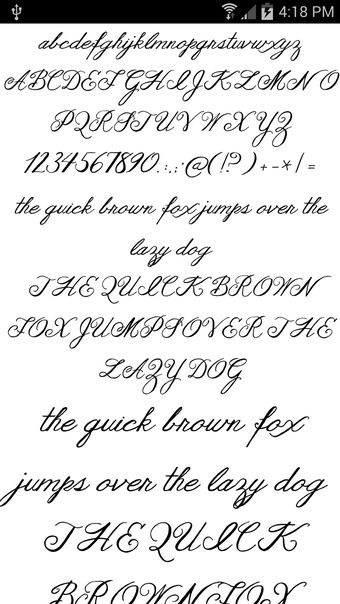 4:18 PM
abcdefghijklmnopqrstuvwxyz
ABCDEFGHIJKLMNO
PQRSTUVWXYZ
1234567890.:,;'@(!?)+-*/=
the quick brown fox jumps over the
lazy dog
THE QUICK BROWN
FOX JUMPS OVER THE
LAZY DOG
the quick brown fox
jumps over the lazy dog
THE QUICK
BROWN FOX